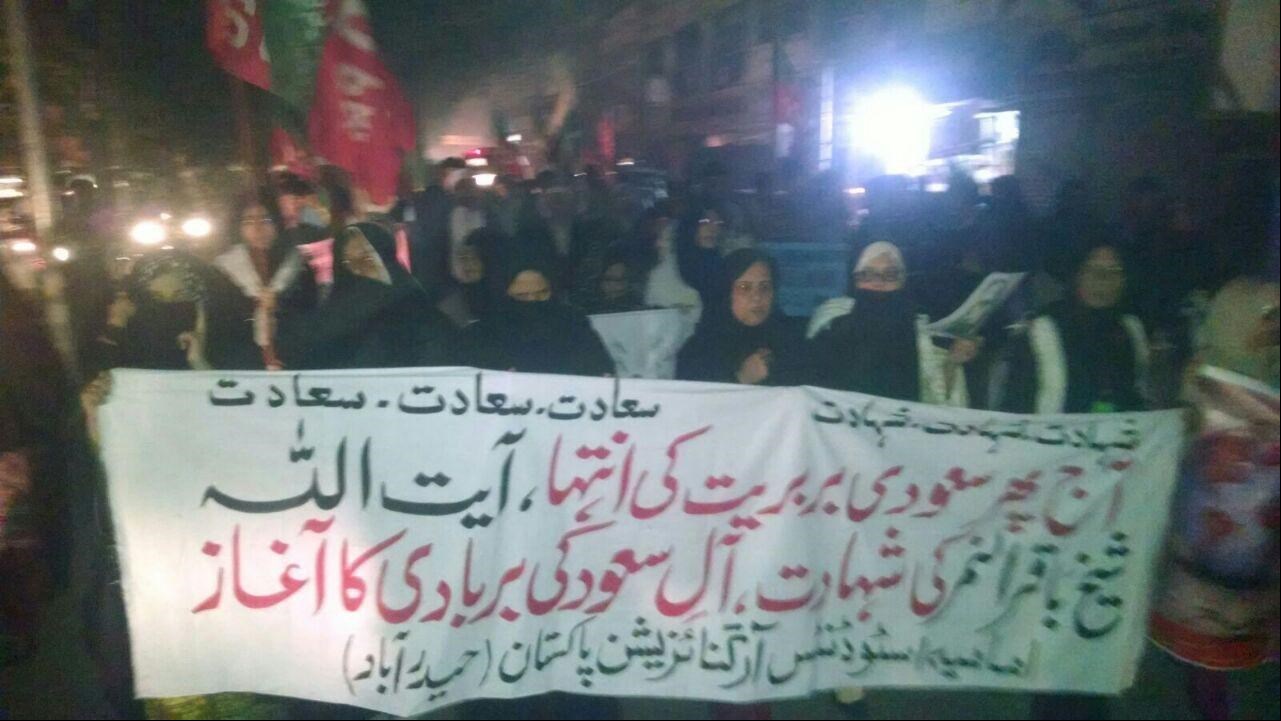 شہادت۔شہادت۔شہادت سعادت۔سعادت۔سعادت
آج پھر سعودی بربریت کی انتہا، آیت اللہ
شیخ باقر النمر کی شہادت، آلِ سعود کی بربادی کا آغاز
امامیہ اسٹوڈنٹس آرگنائزیشن پاکستان (حیدرآباد)